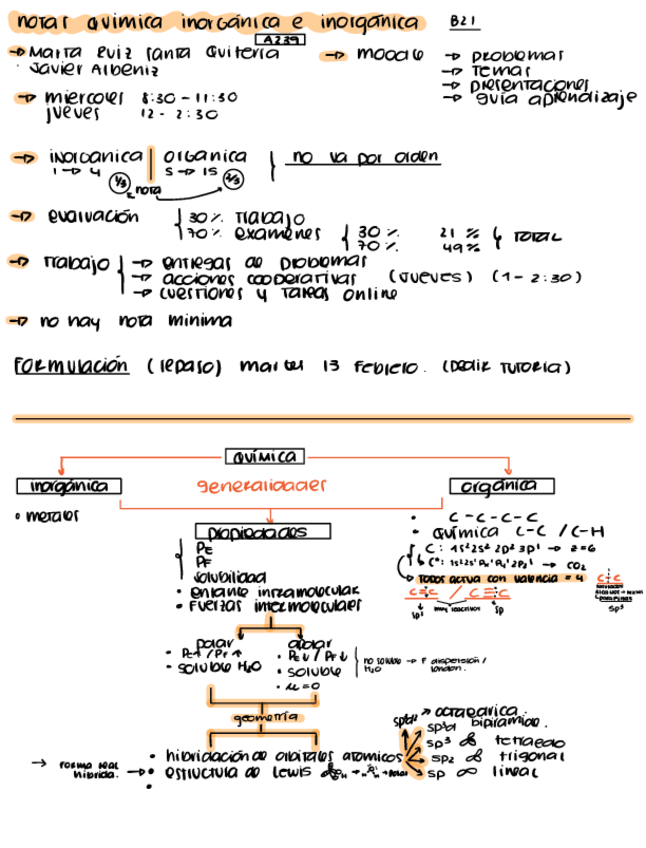 notas química inorgánica e inorgánica B21
A239
→ Marta Ruiz Santa Quiteria → moodle → problemas
· Javier Albeniz → temas
→ presentaciones
→ guía aprendizaje
→ miercoles 8:30 - 11:30
jueves 12 - 2:30
→ inorganica | organica no va por orden
1 → 4 5 → 15
1/3 nota 2/3
→ evaluación 30% trabajo
70% examenes 30% 21% TOTAL
70% 49%
→ trabajo → entregas de problemas
→ acciones cooperativas (jueves) (1 - 2:30)
→ cuestiones y tareas online
→ no hay nota minima
FORMULACIÓN (repaso) martes 13 Febrero. (Pedir TUTORIA)
química
inorgánica generalidades orgánica
• metales
propiedades
PE
PF
solubilidad
• enlante intramolecular
• Fuerzas intermoleculaes
• C - C - C - C
• química C-C / C-H
C: 1s² 2s² 2p² 3p¹ → z=6
→ CO₂
→ Todos actua con valencia = 4
C≡C / C≡C
sp² muy reactivos sp
C÷C
sp³
polar apolar
• PE↑ / PF↑ • PE↓ / PF↓
• soluble H₂O • soluble
• μ=0
no soluble → F dispersión / 
H₂O london.
geometría
→ octaedrica.
sp³d bipiramide.
sp³ tetraedo
sp₂ trigonal
sp lineal
• hibridación de orbitales atomicos
• estructura de Lewis
→ forma real
hibrida. →